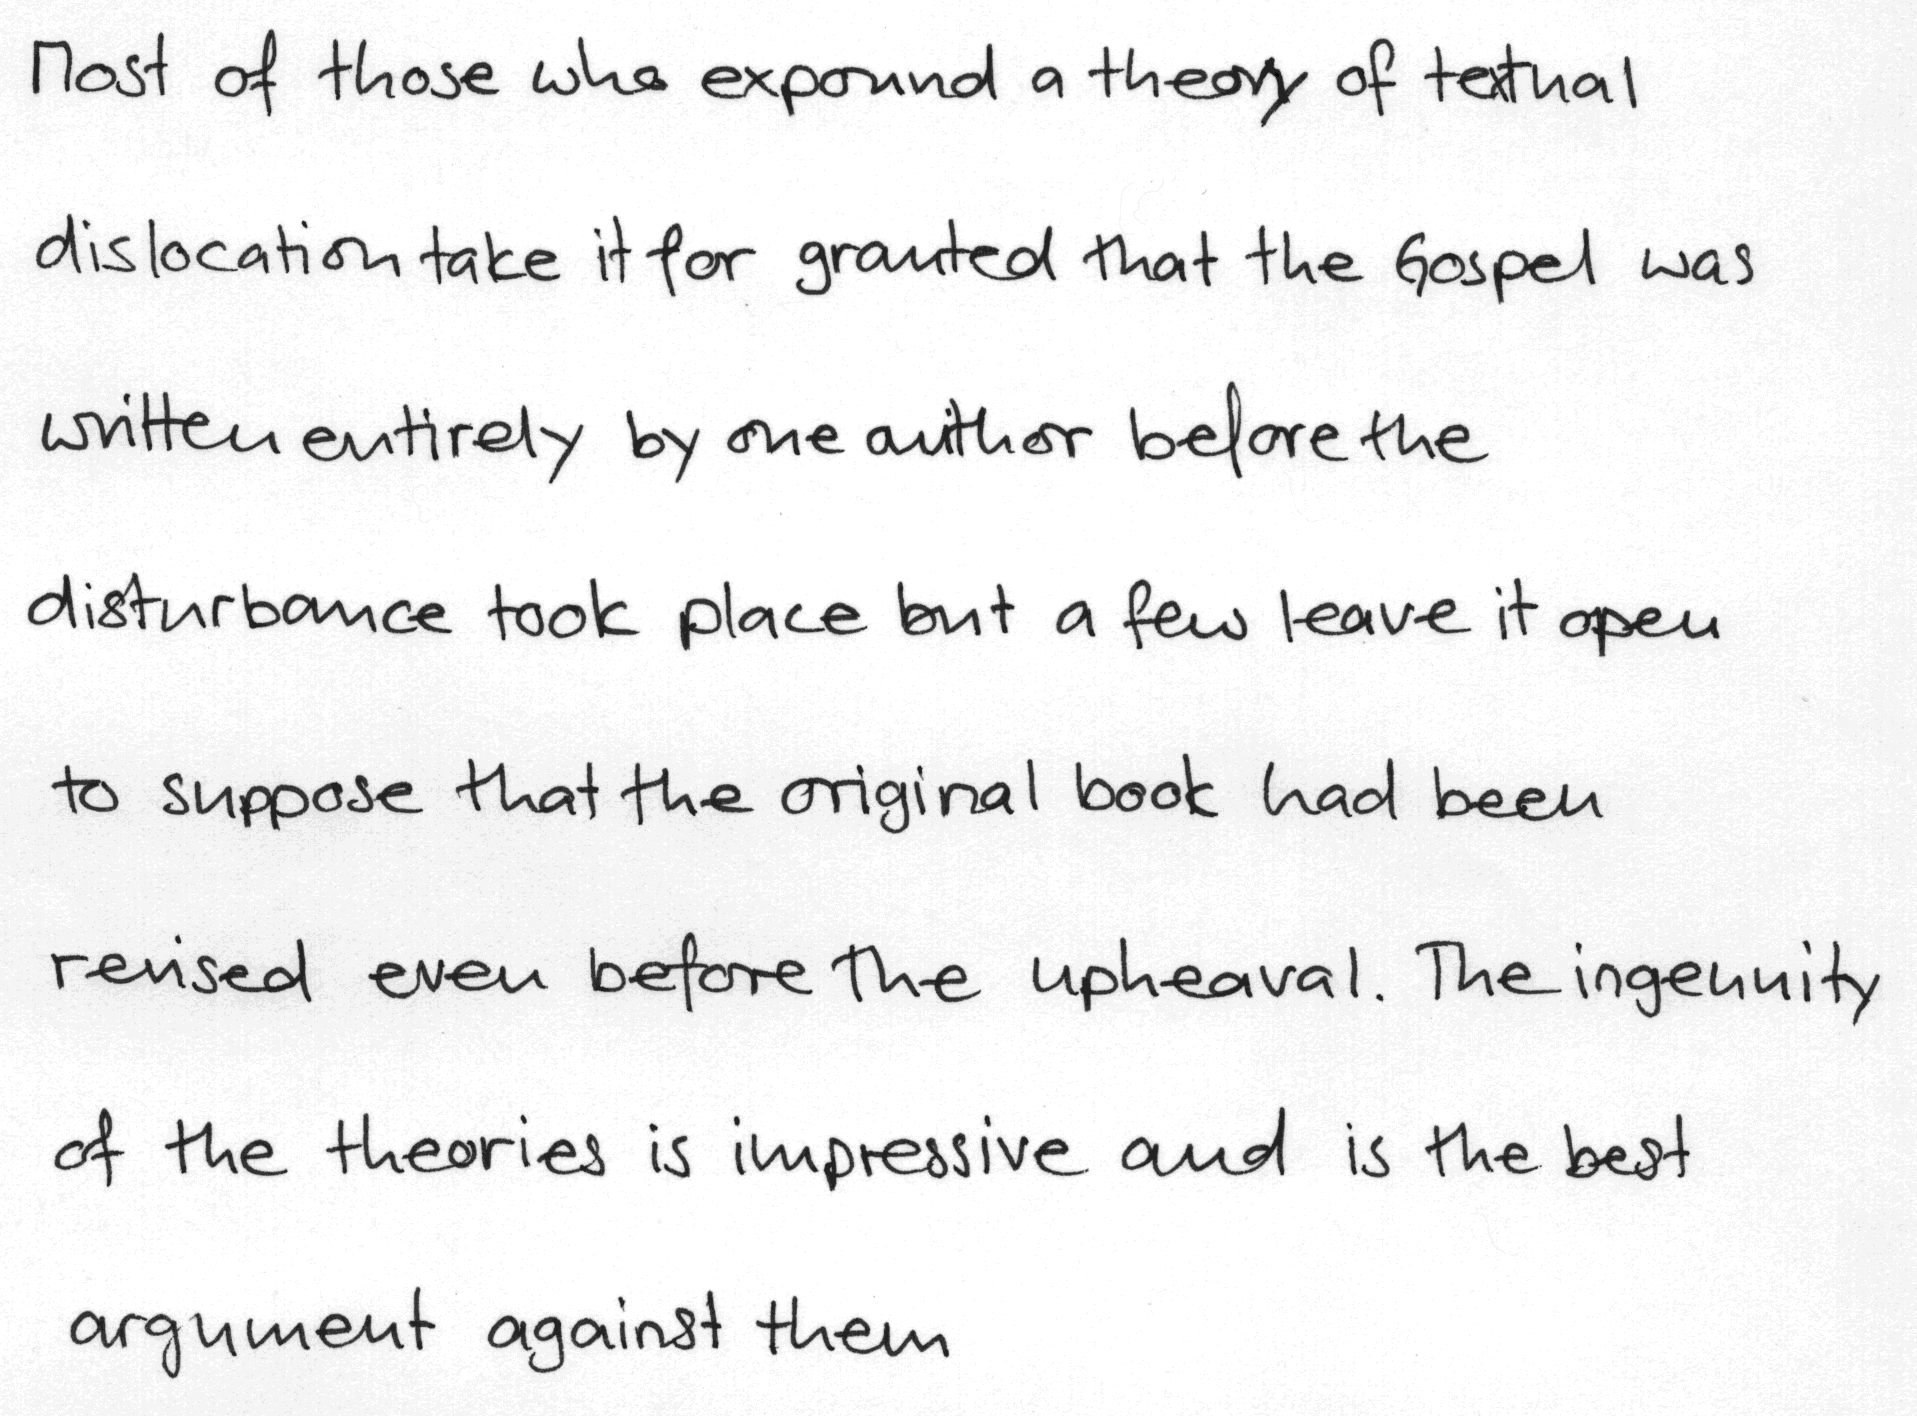 Most of those who expound a theory of textual
dislocation take it for granted that the Gospel was
written entirely by one author before the
disturbance took place but a few leave it open
to suppose that the original book had been
revised even before the upheaval. The ingenuity
of the theories is impressive and is the best
argument against them